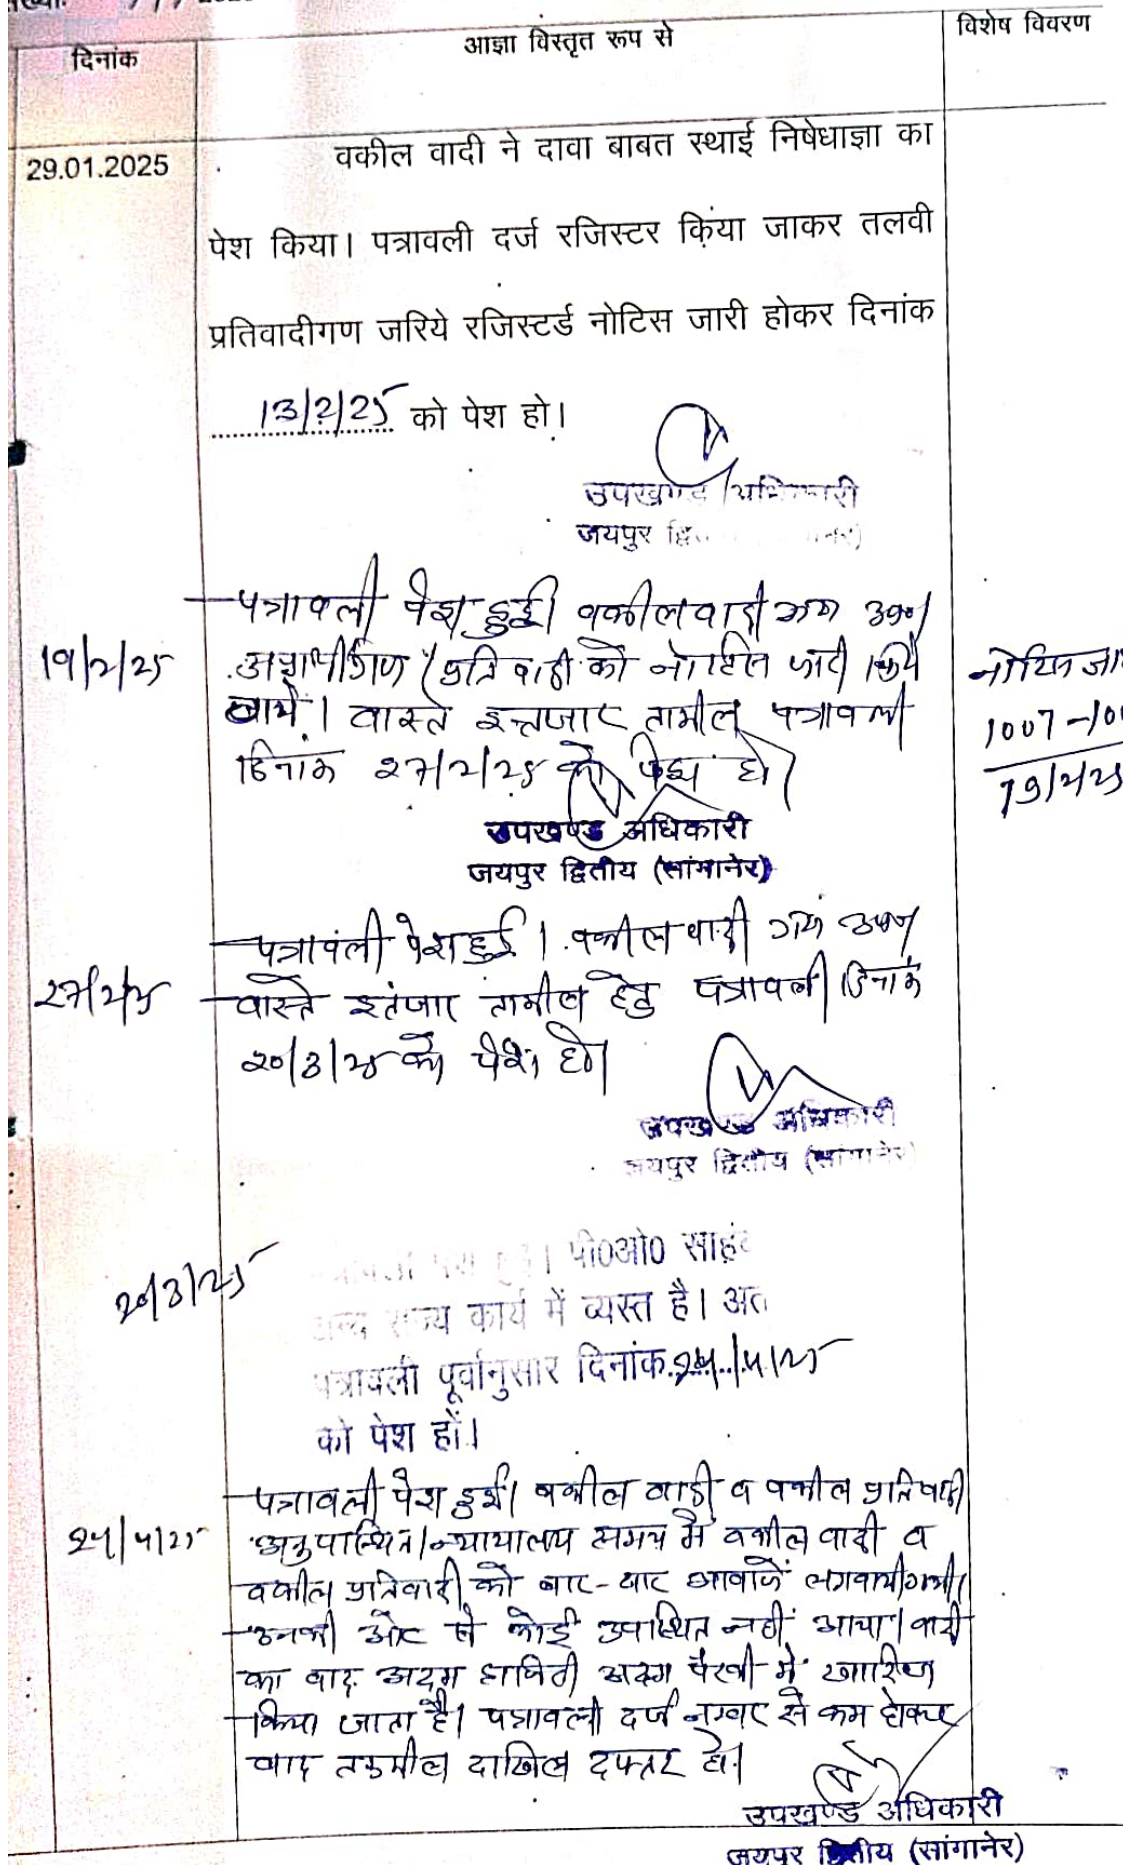 दिनांक
आज्ञा विस्तृत रूप से
विशेष विवरण
29.01.2025
वकील वादी ने दावा बाबत स्थाई निषेधाज्ञा का
पेश किया। पत्रावली दर्ज रजिस्टर किया जाकर तलवी
प्रतिवादीगण जरिये रजिस्टर्ड नोटिस जारी होकर दिनांक
13/2/25 को पेश हो।
उपखण्ड अधिकारी
जयपुर
पत्रावली पेश हुई। वकील वादी मय उप०
19/2/25
अप्रार्थीगण / प्रतिवादी को नोटिस जारी किये
जाये। वास्ते इन्तजार तामील पत्रावली
दिनांक 27/2/25 को पेश हो।
नोटिस जा
1007-10
19/2/25
उपखण्ड अधिकारी
जयपुर द्वितीय (सांगानेर)
पत्रावली पेश हुई। वकील वादी मय उप०
27/2/25
वास्ते इतंजार तामील हेतु पत्रावली दिनांक
20/3/25 को पेश हो।
उपखण्ड अधिकारी
जयपुर द्वितीय (सांगानेर)
20/3/25
पी०ओ० साहब
राज्य कार्य में व्यस्त है। अत
पत्रावली पूर्वानुसार दिनांक 24/4/25
को पेश हों।
पत्रावली पेश हुई। वकील वादी व वकील प्रतिवादी
24/4/25
अनुपास्थित। न्यायालय समय में वकील वादी व
वकील प्रतिवादी को बार-बार आवाजें लगवायी गयी।
उनकी ओर से कोई उपस्थित नहीं आया। वादी
का वाद अदम हाजिरी अदम पैरवी में खारिज
किया जाता है। पत्रावली दर्ज नम्बर से कम होकर
बाद तकमील दाखिल दफ्तर हो।
उपखण्ड अधिकारी
जयपुर द्वितीय (सांगानेर)